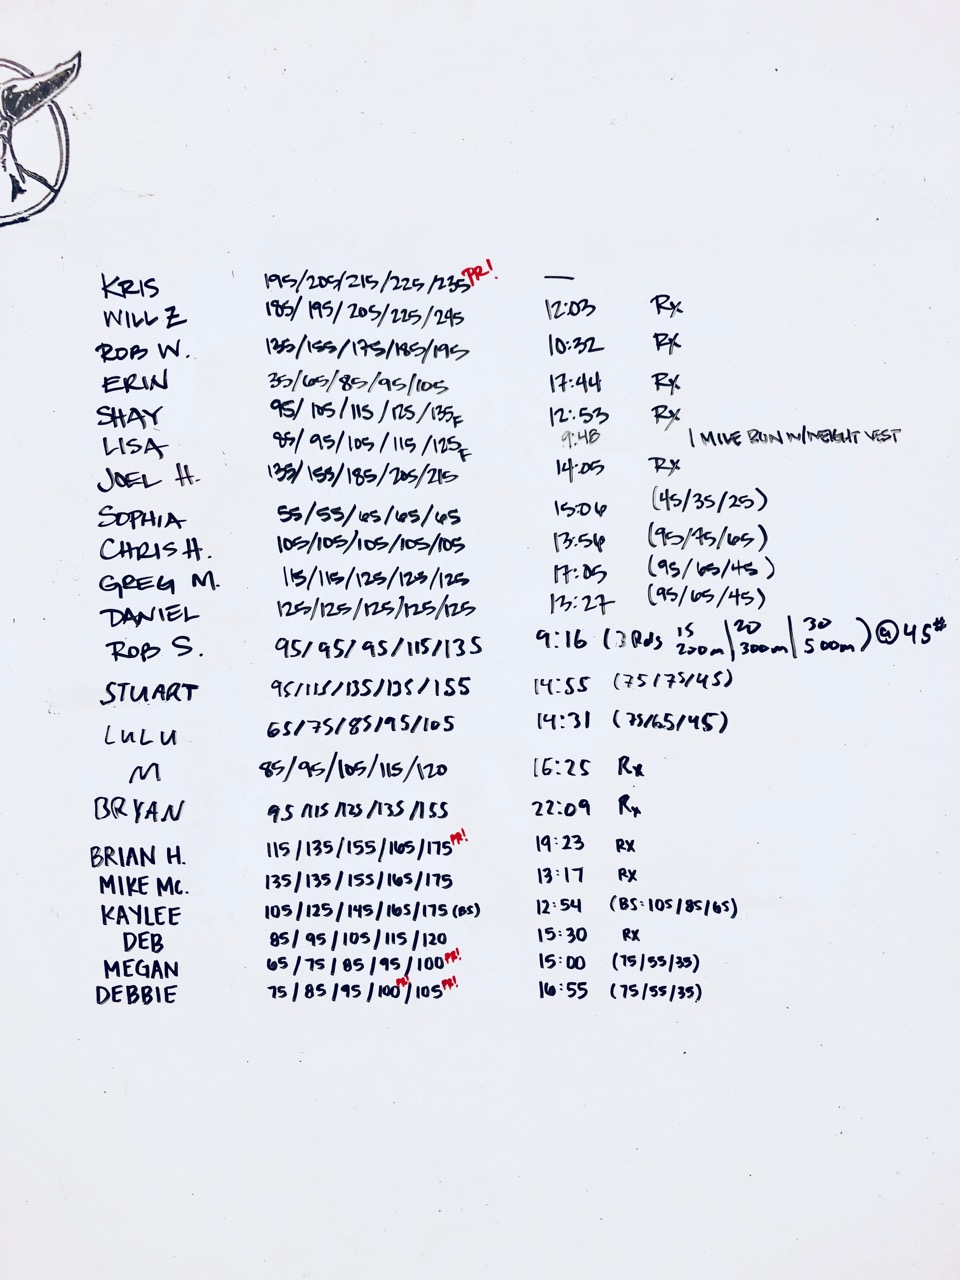 KRIS 195/205/215/225/235 PR! —
WILL Z 185/195/205/225/245 12:03 Rx
ROB W. 135/155/175/185/195 10:32 Rx
ERIN 35/65/85/95/105 17:44 Rx
SHAY 95/105/115/125/135F 12:53 Rx
LISA 85/95/105/115/125F 9:48 1 MILE RUN W/WEIGHT VEST
JOEL H. 135/155/185/205/215 14:05 Rx
SOPHIA 55/55/65/65/65 15:06 (45/35/25)
CHRIS H. 105/105/105/105/105 13:56 (95/75/65)
GREG M. 115/115/125/125/125 17:05 (95/65/45)
DANIEL 125/125/125/125/125 13:27 (95/65/45)
ROB S. 95/95/95/115/135 9:16 (3 Rds 15 200m | 20 300m | 30 500m) @ 45#
STUART 95/115/135/135/155 14:55 (75/75/45)
LULU 65/75/85/95/105 14:31 (75/65/45)
M 85/95/105/115/120 16:25 Rx
BRYAN 95/115/125/135/155 22:09 Rx
BRIAN H. 115/135/155/165/175 PR! 19:23 RX
MIKE MC. 135/135/155/165/175 13:17 RX
KAYLEE 105/125/145/165/175 (BS) 12:54 (BS:105/85/65)
DEB 85/95/105/115/120 15:30 RX
MEGAN 65/75/85/95/100 PR! 15:00 (75/55/35)
DEBBIE 75/85/95/100 PR!/105 PR! 16:55 (75/55/35)